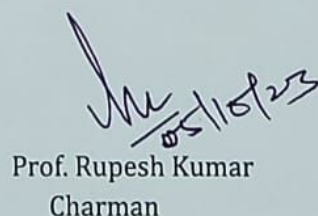 05/10/23
Prof. Rupesh Kumar
Charman